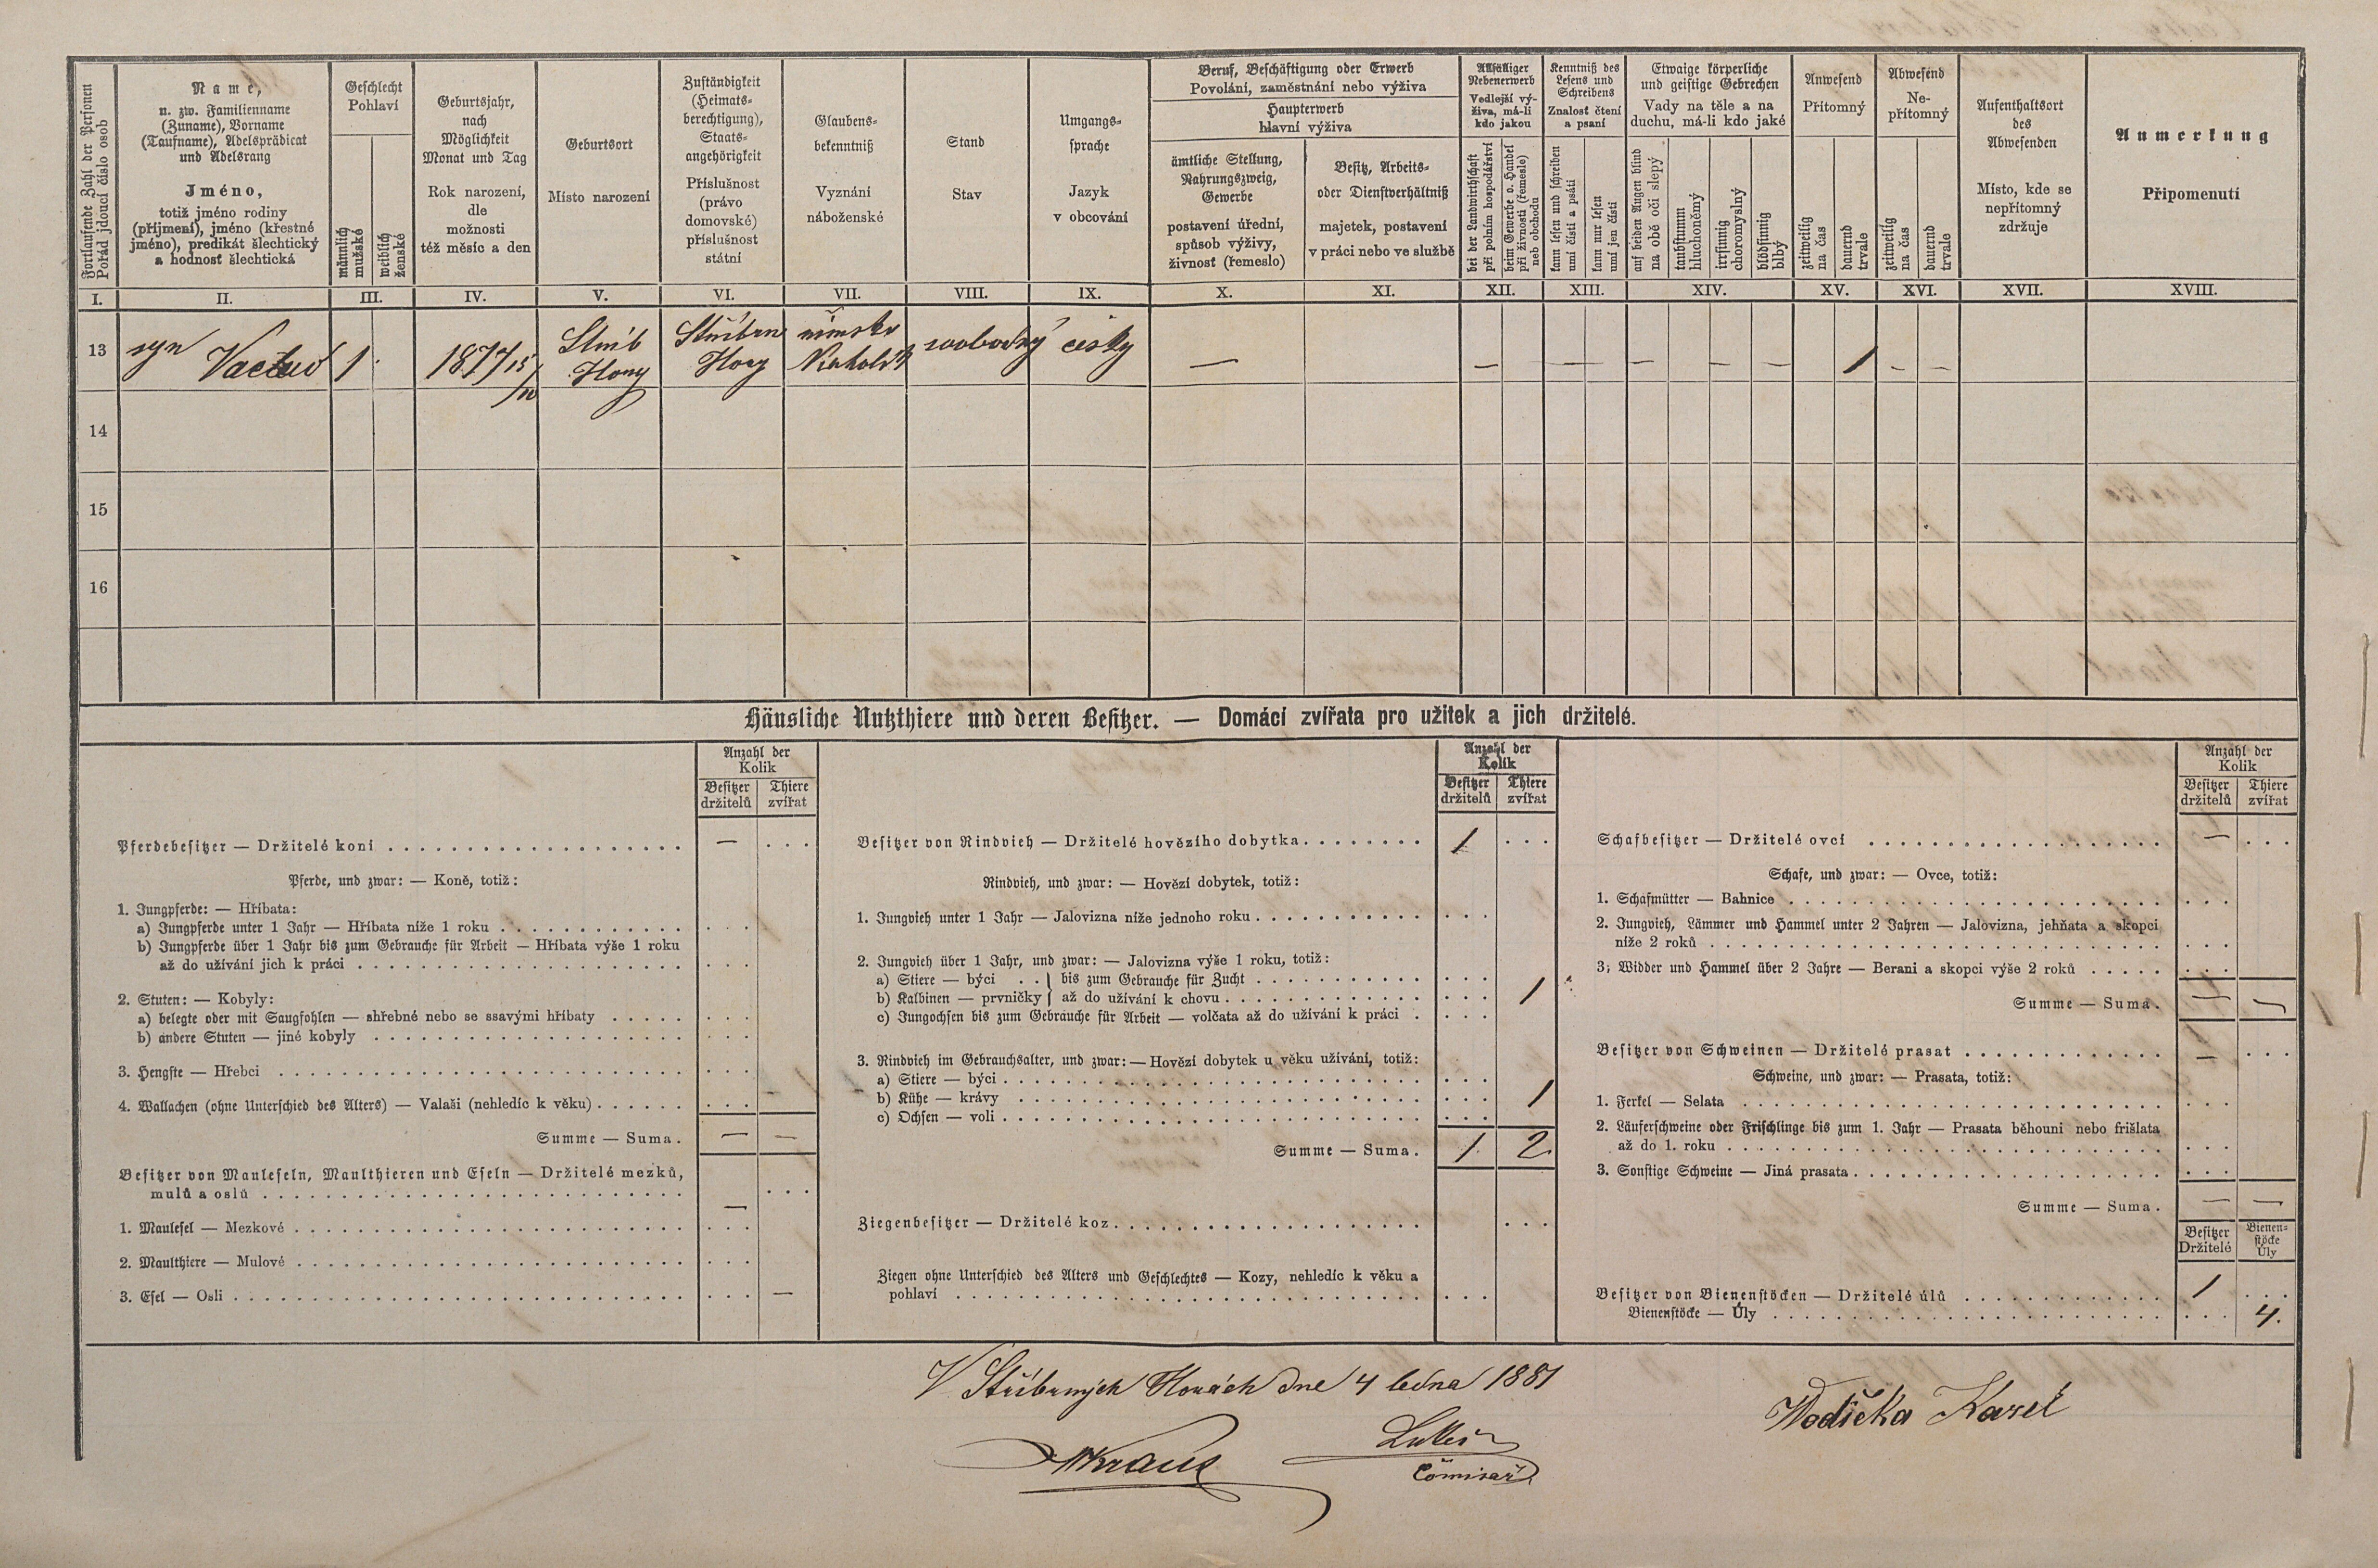 Fortlaufende Zahl der Personen
Pořád jdoucí číslo osob
Name,
u. zw. Familienname
(Zuname), Vorname
(Taufname), Adelsprädicat
und Adelsrang
Jméno,
totiž jméno rodiny
(příjmení), jméno (křestné
jméno), predikát šlechtický
a hodnosť šlechtická
Geschlecht
Pohlaví
männlich
mužské
weiblich
ženské
Geburtsjahr,
nach
Möglichkeit
Monat und Tag
Rok narození,
dle
možnosti
též měsíc a den
Geburtsort
Místo narození
Zuständigkeit
(Heimats-
berechtigung),
Staats-
angehörigkeit
Příslušnost
(právo
domovské)
příslušnost
státní
Glaubens-
bekenntniß
Vyznání
náboženské
Stand
Stav
Umgangs-
sprache
Jazyk
v obcování
Beruf, Beschäftigung oder Erwerb
Povolání, zaměstnání nebo výživa
Haupterwerb
hlavní výživa
ämtliche Stellung,
Nahrungszweig,
Gewerbe
postavení úřední,
spůsob výživy,
živnosť (řemeslo)
Besitz, Arbeits-
oder Dienstverhältniß
majetek, postavení
v práci nebo ve službě
Allfälliger
Nebenerwerb
Vedlejší vý-
živa, má-li
kdo jakou
bei der Landwirthschaft
při polním hospodářství
beim Gewerbe o. Handel
při živnosti (řemesle)
neb obchodu
Kenntniß des
Lesens und
Schreibens
Znalosť čtení
a psaní
kann lesen und schreiben
umí čísti a psáti
kann nur lesen
umí jen čísti
Etwaige körperliche
und geistige Gebrechen
Vady na těle a na
duchu, má-li kdo jaké
auf beiden Augen blind
na obě oči slepý
taubstumm
hluchoněmý
irrsinnig
choromyslný
blödsinnig
blbý
Anwesend
Přítomný
zeitweilig
na čas
dauernd
trvale
Abwesend
Ne-
přítomný
zeitweilig
na čas
dauernd
trvale
Aufenthaltsort
des
Abwesenden
Místo, kde se
nepřítomný
zdržuje
Anmerkung
Připomenutí
I. II. III. IV. V. VI. VII. VIII. IX. X. XI. XII. XIII. XIV. XV. XVI. XVII. XVIII.
13 syn 1 1877 15/10 Hory Hory svobodný česky — — — — — — 1 — —
14
15
16
Häusliche Nutzthiere und deren Besitzer. — Domácí zvířata pro užitek a jich držitelé.
Anzahl der
Kolik
Besitzer
držitelů
Thiere
zvířat
Pferdebesitzer — Držitelé koní . . . —
Pferde, und zwar: — Koně, totiž:
1. Jungpferde: — Hříbata:
a) Jungpferde unter 1 Jahr — Hříbata níže 1 roku
b) Jungpferde über 1 Jahr bis zum Gebrauche für Arbeit — Hříbata výše 1 roku
až do užívání jich k práci
2. Stuten: — Kobyly:
a) belegte oder mit Saugfohlen — shřebné nebo se ssavými hříbaty
b) andere Stuten — jiné kobyly
3. Hengste — Hřebci
4. Wallachen (ohne Unterschied des Alters) — Valaši (nehledíc k věku)
Summe — Suma. — —
Besitzer von Mauleseln, Maulthieren und Eseln — Držitelé mezků,
mulů a oslů . . . —
1. Maulesel — Mezkové
2. Maulthiere — Mulové
3. Esel — Osli . . . —
Anzahl der
Kolik
Besitzer
držitelů
Thiere
zvířat
Besitzer von Rindvieh — Držitelé hovězího dobytka . . . 1
Rindvieh, und zwar: — Hovězí dobytek, totiž:
1. Jungvieh unter 1 Jahr — Jalovizna níže jednoho roku
2. Jungvieh über 1 Jahr, und zwar: — Jalovizna výše 1 roku, totiž:
a) Stiere — býci . . } bis zum Gebrauche für Zucht
b) Kalbinen — prvničky } až do užívání k chovu . . . 1
c) Jungochsen bis zum Gebrauche für Arbeit — volčata až do užívání k práci
3. Rindvieh im Gebrauchsalter, und zwar: — Hovězí dobytek u věku užívání, totiž:
a) Stiere — býci
b) Kühe — krávy . . . 1
c) Ochsen — voli
Summe — Suma. 1 2
Ziegenbesitzer — Držitelé koz
Ziegen ohne Unterschied des Alters und Geschlechtes — Kozy, nehledíc k věku a
pohlaví
Anzahl der
Kolik
Besitzer
držitelů
Thiere
zvířat
Schafbesitzer — Držitelé ovcí . . . —
Schafe, und zwar: — Ovce, totiž:
1. Schafmütter — Bahnice
2. Jungvieh, Lämmer und Hammel unter 2 Jahren — Jalovizna, jehňata a skopci
níže 2 roků
3. Widder und Hammel über 2 Jahre — Berani a skopci výše 2 roků
Summe — Suma. — —
Besitzer von Schweinen — Držitelé prasat . . . —
Schweine, und zwar: — Prasata, totiž:
1. Ferkel — Selata
2. Läuferschweine oder Frischlinge bis zum 1. Jahr — Prasata běhouni nebo frišlata
až do 1. roku
3. Sonstige Schweine — Jiná prasata
Summe — Suma. — —
Besitzer
Držitelé
Bienen-
stöcke
Úly
Besitzer von Bienenstöcken — Držitelé úlů . . . 1
Bienenstöcke — Úly . . . 4.
V Stříbrných Horách dne 4 ledna 1881
Wodička Karel
Kraus
komisař